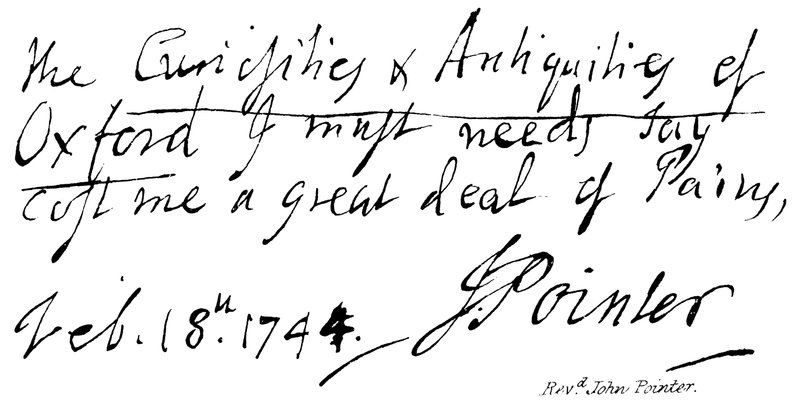 The Curiosities & Antiquities of
Oxford I must needs say
cost me a great deal of Pains,
Feb. 18th. 1744.
J. Pointer
Revd. John Pointer.